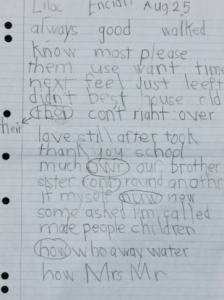 Lilac Enciali Aug 25
always good walked
know most please
them use want time
next feel just leeft
didn't best house old
ther con't right over
their
love still after took
thank you school
much owr our brother
sister cont round anoth
it myself nuw new
some asked I'm called
made people children
how who away water
how Mrs Mr